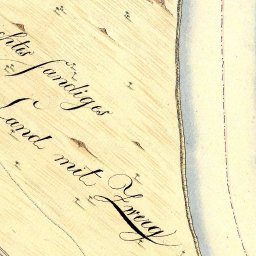 chtes sandiges
Land mit Zwerg